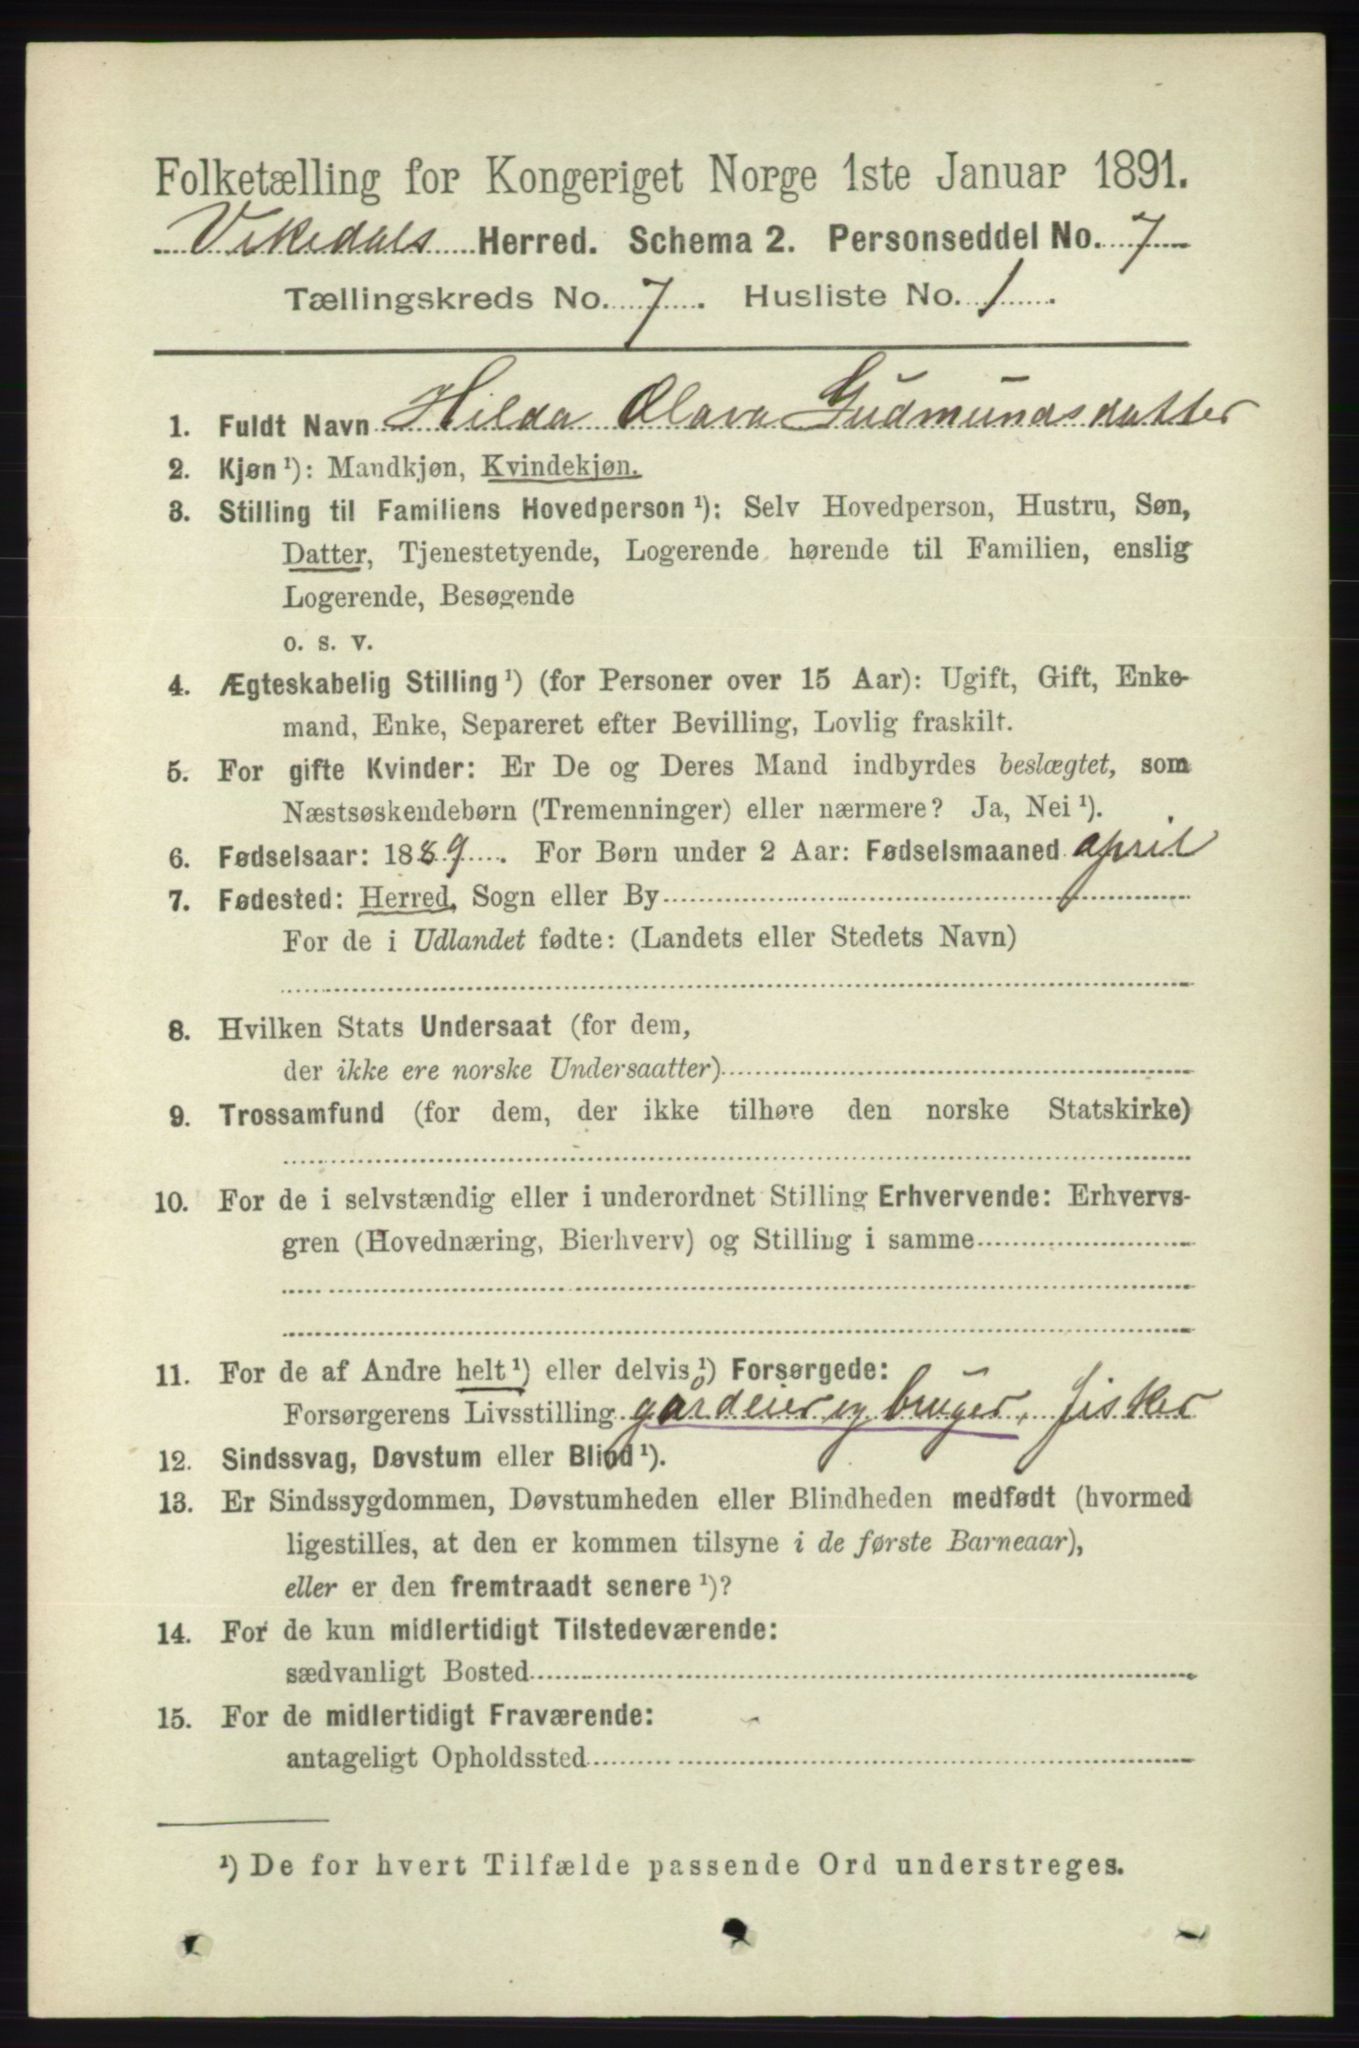 Folketælling for Kongeriget Norge 1ste Januar 1891.
Vikedals Herred. Schema 2. Personseddel No. 7
Tællingskreds No. 7. Husliste No. 1.
1. Fuldt Navn Hilda Olava Gudmundsdatter
2. Kjøn ¹): Mandkjøn, Kvindekjøn.
3. Stilling til Familiens Hovedperson ¹): Selv Hovedperson, Hustru, Søn,
Datter, Tjenestetyende, Logerende hørende til Familien, enslig
Logerende, Besøgende
o. s. v.
4. Ægteskabelig Stilling ¹) (for Personer over 15 Aar): Ugift, Gift, Enke-
mand, Enke, Separeret efter Bevilling, Lovlig fraskilt.
5. For gifte Kvinder: Er De og Deres Mand indbyrdes beslægtet, som
Næstsøskendebørn (Tremenninger) eller nærmere? Ja, Nei ¹).
6. Fødselsaar: 1889. For Børn under 2 Aar: Fødselsmaaned april
7. Fødested: Herred, Sogn eller By
For de i Udlandet fødte: (Landets eller Stedets Navn)
8. Hvilken Stats Undersaat (for dem,
der ikke ere norske Undersaatter)
9. Trossamfund (for dem, der ikke tilhøre den norske Statskirke)
10. For de i selvstændig eller i underordnet Stilling Erhvervende: Erhvervs-
gren (Hovednæring, Bierhverv) og Stilling i samme
11. For de af Andre helt ¹) eller delvis ¹) Forsørgede:
Forsørgerens Livsstilling gårdeier og bruger, fisker
12. Sindssvag, Døvstum eller Blind ¹).
13. Er Sindssygdommen, Døvstumheden eller Blindheden medfødt (hvormed
ligestilles, at den er kommen tilsyne i de første Barneaar),
eller er den fremtraadt senere ¹)?
14. For de kun midlertidigt Tilstedeværende:
sædvanligt Bosted
15. For de midlertidigt Fraværende:
antageligt Opholdssted
¹) De for hvert Tilfælde passende Ord understreges.